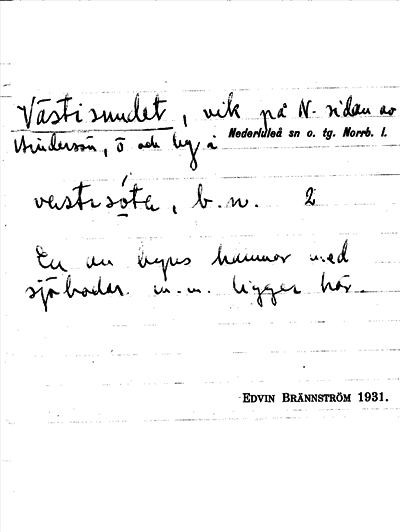 Västisundet, vik på N. sidan av
Hindersön, ö och by i Nederluleå sn o. tg. Norrb. l.
b. n. 2
En av byns hamnar med
sjöbodar m.m. ligger här.
EDVIN BRÄNNSTRÖM 1931.